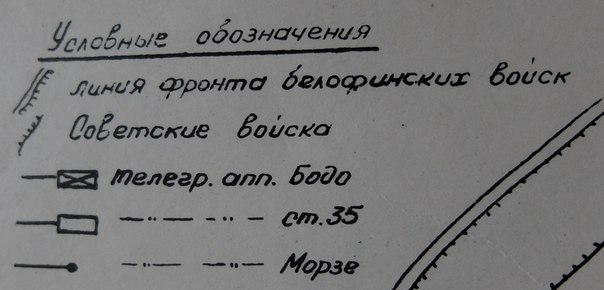 Условные обозначения
линия фронта белофинских войск
Советские войска
телегр. апп. Бодо
— ·· — ·· — ст. 35
— ·· — ·· — Морзе